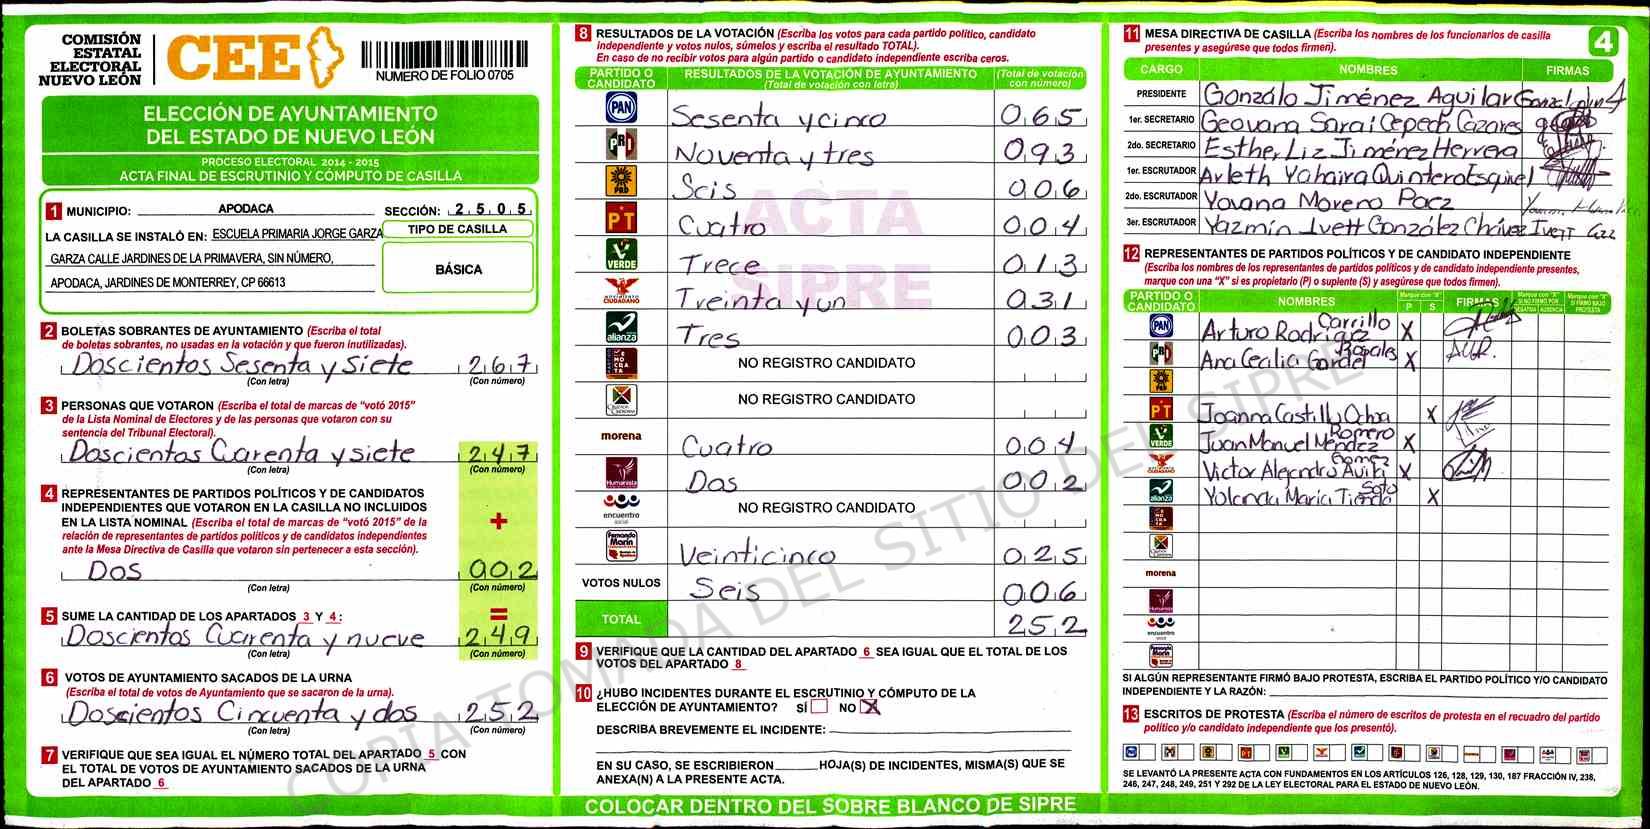 COMISIÓN
ESTATAL
ELECTORAL
NUEVO LEÓN
CEE
NUMERO DE FOLIO 0705
ELECCIÓN DE AYUNTAMIENTO
DEL ESTADO DE NUEVO LEÓN
PROCESO ELECTORAL 2014 - 2015
ACTA FINAL DE ESCRUTINIO Y CÓMPUTO DE CASILLA
1 MUNICIPIO: APODACA SECCIÓN: 2505
LA CASILLA SE INSTALÓ EN: ESCUELA PRIMARIA JORGE GARZA
GARZA CALLE JARDINES DE LA PRIMAVERA, SIN NÚMERO,
APODACA, JARDINES DE MONTERREY, CP 66613
TIPO DE CASILLA
BÁSICA
2 BOLETAS SOBRANTES DE AYUNTAMIENTO (Escriba el total
de boletas sobrantes, no usadas en la votación y que fueron inutilizadas).
Doscientos Sesenta y Siete 267
(Con letra) (Con número)
3 PERSONAS QUE VOTARON (Escriba el total de marcas de “votó 2015”
de la Lista Nominal de Electores y de las personas que votaron con su
sentencia del Tribunal Electoral).
Doscientos Carenta y siete 247
(Con letra) (Con número)
4 REPRESENTANTES DE PARTIDOS POLÍTICOS Y DE CANDIDATOS
INDEPENDIENTES QUE VOTARON EN LA CASILLA NO INCLUIDOS
EN LA LISTA NOMINAL (Escriba el total de marcas de “votó 2015” de la
relación de representantes de partidos políticos y de candidatos independientes
ante la Mesa Directiva de Casilla que votaron sin pertenecer a esta sección).
+
Dos 002
(Con letra) (Con número)
=
5 SUME LA CANTIDAD DE LOS APARTADOS 3 Y 4:
Doscientos Cuarenta y nueve 249
(Con letra) (Con número)
6 VOTOS DE AYUNTAMIENTO SACADOS DE LA URNA
(Escriba el total de votos de Ayuntamiento que se sacaron de la urna).
Doscientos Cincuenta y dos 252
(Con letra) (Con número)
7 VERIFIQUE QUE SEA IGUAL EL NÚMERO TOTAL DEL APARTADO 5 CON
EL TOTAL DE VOTOS DE AYUNTAMIENTO SACADOS DE LA URNA
DEL APARTADO 6
8 RESULTADOS DE LA VOTACIÓN (Escriba los votos para cada partido político, candidato
independiente y votos nulos, súmelos y escriba el resultado TOTAL).
En caso de no recibir votos para algún partido o candidato independiente escriba ceros.
PARTIDO O CANDIDATO RESULTADOS DE LA VOTACIÓN DE AYUNTAMIENTO (Total de votación con letra) (Total de votación con número)
PAN Sesenta y cinco 065
PRD Noventa y tres 093
PRD Seis 006
PT Cuatro 004
VERDE Trece 013
MOVIMIENTO CIUDADANO Treinta y un 031
alianza Tres 003
DEMOCRATA NO REGISTRO CANDIDATO
NO REGISTRO CANDIDATO
morena Cuatro 004
Humanista Dos 002
encuentro social NO REGISTRO CANDIDATO
Fernando Marín Veinticinco 025
VOTOS NULOS Seis 006
TOTAL 252
ACTA
SIPRE
COPIA TOMADA DEL SITIO DEL SIPRE
9 VERIFIQUE QUE LA CANTIDAD DEL APARTADO 6 SEA IGUAL QUE EL TOTAL DE LOS
VOTOS DEL APARTADO 8
10 ¿HUBO INCIDENTES DURANTE EL ESCRUTINIO Y CÓMPUTO DE LA
ELECCIÓN DE AYUNTAMIENTO? SÍ NO X
DESCRIBA BREVEMENTE EL INCIDENTE:
EN SU CASO, SE ESCRIBIERON HOJA(S) DE INCIDENTES, MISMA(S) QUE SE
ANEXA(N) A LA PRESENTE ACTA.
COLOCAR DENTRO DEL SOBRE BLANCO DE SIPRE
11 MESA DIRECTIVA DE CASILLA (Escriba los nombres de los funcionarios de casilla
presentes y asegúrese que todos firmen).
4
CARGO NOMBRES FIRMAS
PRESIDENTE Gonzálo Jiménez Aguilar
1er. SECRETARIO Geovana Sarai Cepeda Cazares
2do. SECRETARIO Esther Liz Jiménez Herrera
1er. ESCRUTADOR Arleth Yahaira Quintero Esquivel
2do. ESCRUTADOR Yovana Moreno Paez
3er. ESCRUTADOR Yazmín Ivett González Chávez Ivett Gzz
12 REPRESENTANTES DE PARTIDOS POLÍTICOS Y DE CANDIDATO INDEPENDIENTE
(Escriba los nombres de los representantes de partidos políticos y de candidato independiente presentes,
marque con una “X” si es propietario (P) o suplente (S) y asegúrese que todos firmen).
PARTIDO O CANDIDATO NOMBRES Marque con “X” P S FIRMAS Marque con “X” SI NO FIRMÓ POR NEGATIVA AUSENCIA Marque con “X” SI FIRMÓ BAJO PROTESTA
PAN Arturo Rodríguez Carrillo X
Ana Cecilia Rosales X
PRD
PT Joanna Castillo Ochoa X
VERDE Juan Manuel Méndez Romero X
Victor Alejandro Gomez X
alianza Yolanda María Tienda Soto X
morena
Humanista
encuentro social
Fernando Marín
SI ALGÚN REPRESENTANTE FIRMÓ BAJO PROTESTA, ESCRIBA EL PARTIDO POLÍTICO Y/O CANDIDATO
INDEPENDIENTE Y LA RAZÓN:
13 ESCRITOS DE PROTESTA (Escriba el número de escritos de protesta en el recuadro del partido
político y/o candidato independiente que los presentó).
SE LEVANTÓ LA PRESENTE ACTA CON FUNDAMENTOS EN LOS ARTÍCULOS 126, 128, 129, 130, 187 FRACCIÓN IV, 238,
246, 247, 248, 249, 251 Y 292 DE LA LEY ELECTORAL PARA EL ESTADO DE NUEVO LEÓN.